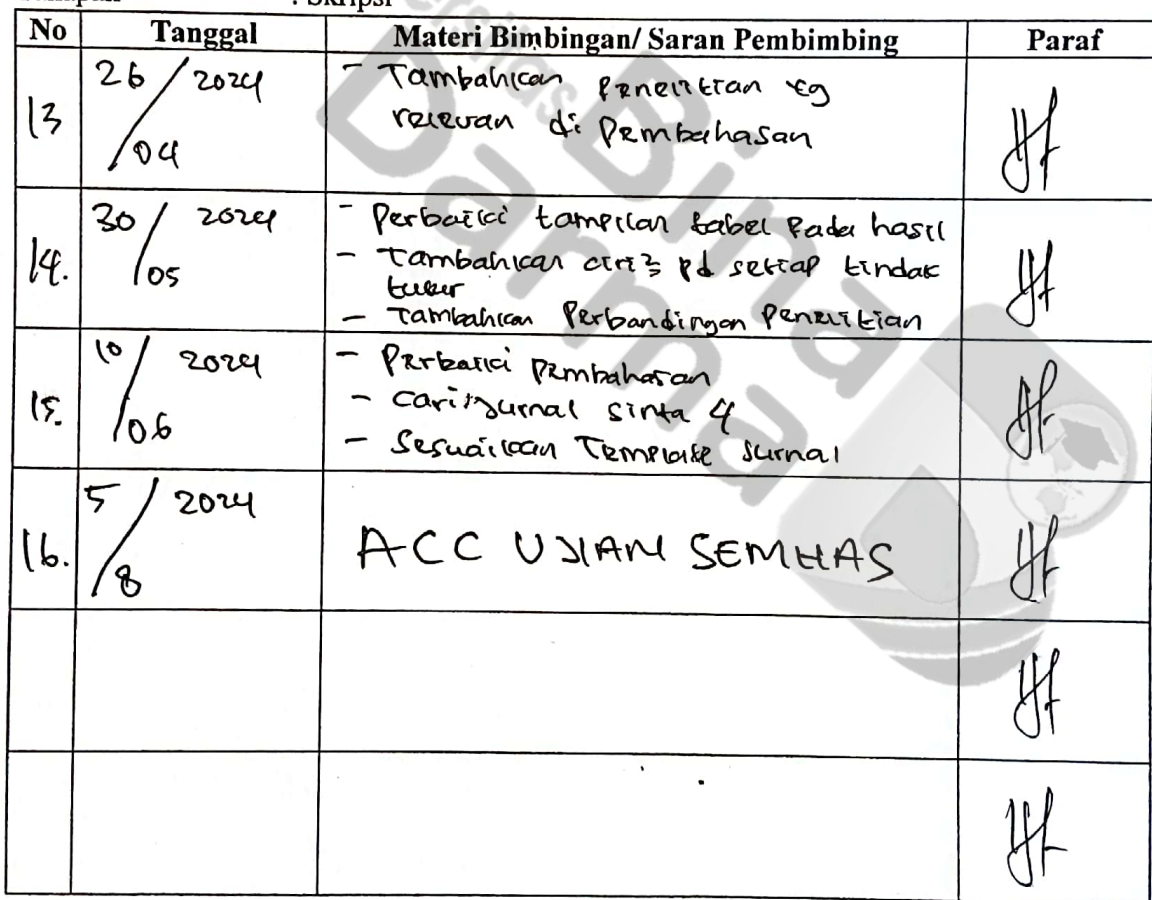 : Skripsi
No Tanggal Materi Bimbingan/ Saran Pembimbing Paraf
13 26/04 2024 - Tambahkan penelitian yg
relevan di Pembahasan
14. 30/05 2024 - Perbaiki tampilan tabel pada hasil
- Tambahkan ciri2 pd setiap tindak
tutur
- Tambahkan Perbandingan Penelitian
15. 10/06 2024 - Perbaiki pembahasan
- Cari jurnal sinta 4
- Sesuaikan Template Jurnal
16. 5/8 2024 ACC UJIAN SEMHAS
Bina
Darma